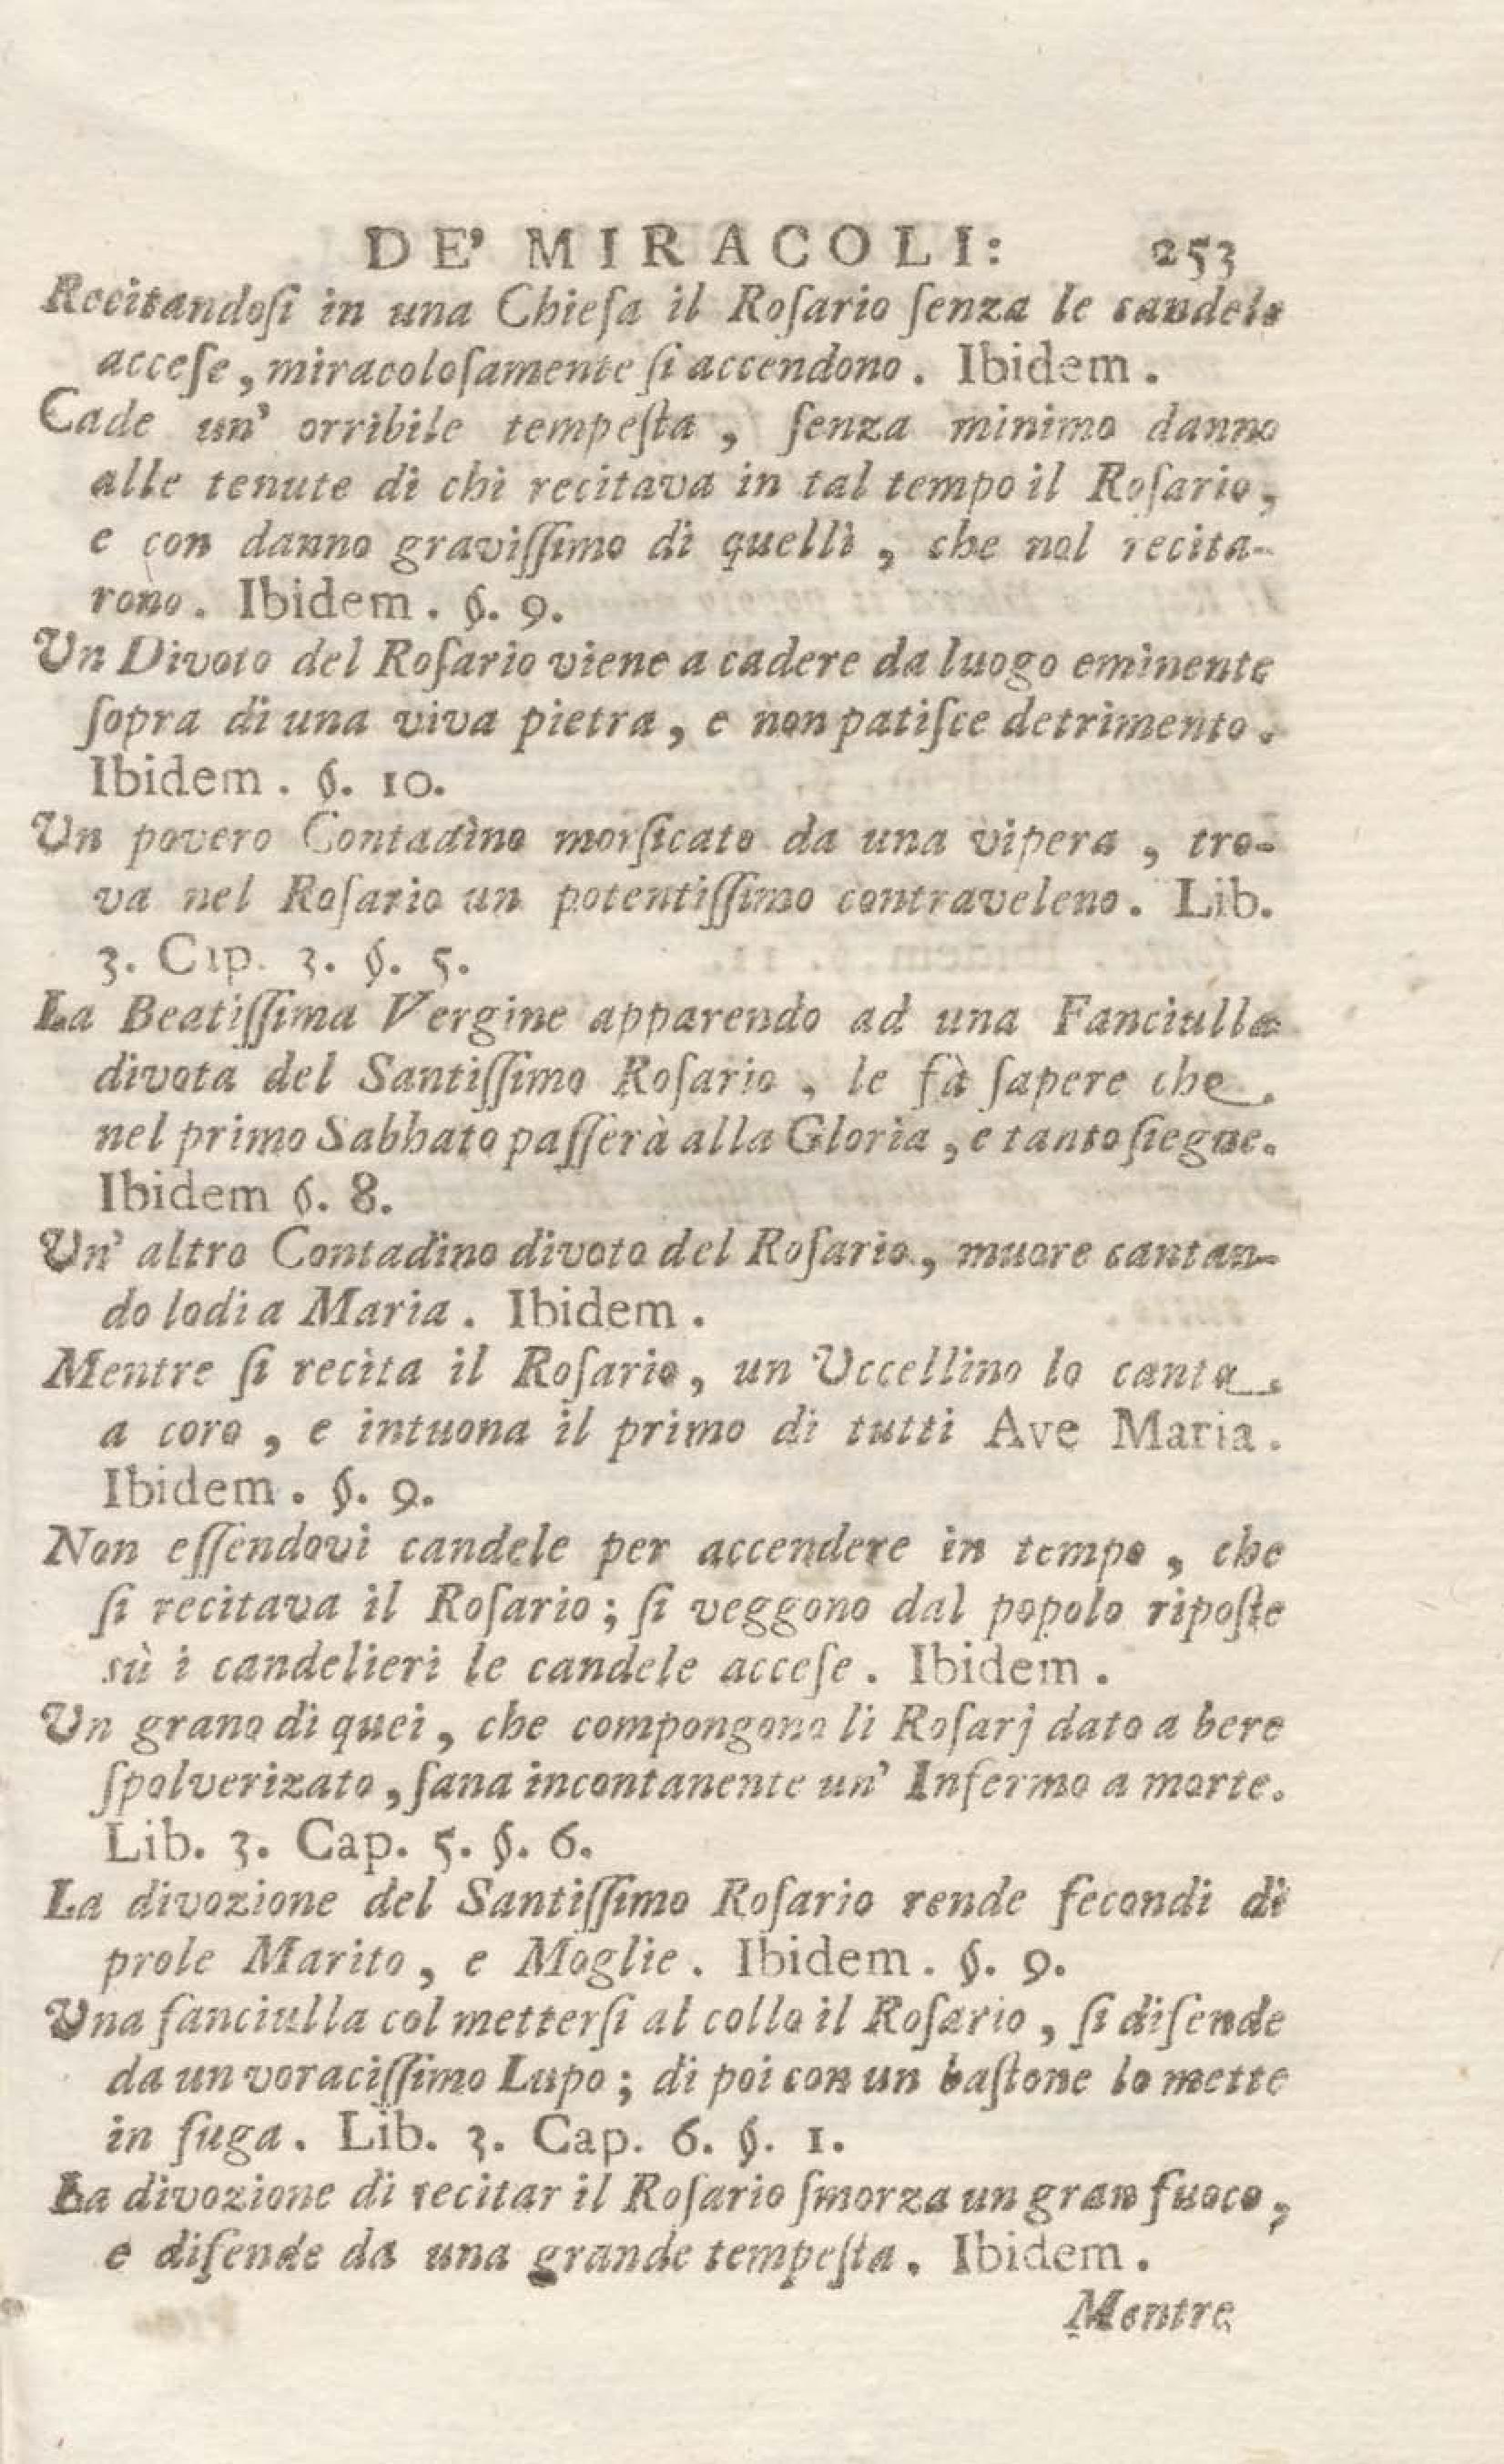 DE' MIRACOLI: 253
Recitandosi in una Chiesa il Rosario senza le candele
accese, miracolosamente si accendono. Ibidem.
Cade un' orribile tempesta, senza minimo danno
alle tenute di chi recitava in tal tempo il Rosario,
e con danno gravissimo di quelli, che nol recita-
rono. Ibidem. §. 9.
Un Divoto del Rosario viene a cadere da luogo eminente
sopra di una viva pietra, e non patisce detrimento.
Ibidem. §. 10.
Un povero Contadino morsicato da una vipera, tro-
va nel Rosario un potentissimo contraveleno. Lib.
3. Cap. 3. §. 5.
La Beatissima Vergine apparendo ad una Fanciulla
divota del Santissimo Rosario, le fà sapere che
nel primo Sabbato passerà alla Gloria, e tanto siegue.
Ibidem §. 8.
Un' altro Contadino divoto del Rosario, muore cantan-
do lodi a Maria. Ibidem.
Mentre si recita il Rosario, un Uccellino lo canta
a coro, e intuona il primo di tutti Ave Maria.
Ibidem. §. 9.
Non essendovi candele per accendere in tempo, che
si recitava il Rosario; si veggono dal popolo riposte
sù i candelieri le candele accese. Ibidem.
Un grano di quei, che compongono li Rosarj dato a bere
spolverizato, sana incontanente un' Infermo a morte.
Lib. 3. Cap. 5. §. 6.
La divozione del Santissimo Rosario rende fecondi di
prole Marito, e Moglie. Ibidem. §. 9.
Una fanciulla col mettersi al collo il Rosario, si difende
da un voracissimo Lupo; di poi con un bastone lo mette
in fuga. Lib. 3. Cap. 6. §. 1.
La divozione di recitar il Rosario smorza un gran fuoco,
e difende da una grande tempesta. Ibidem.
Mentre